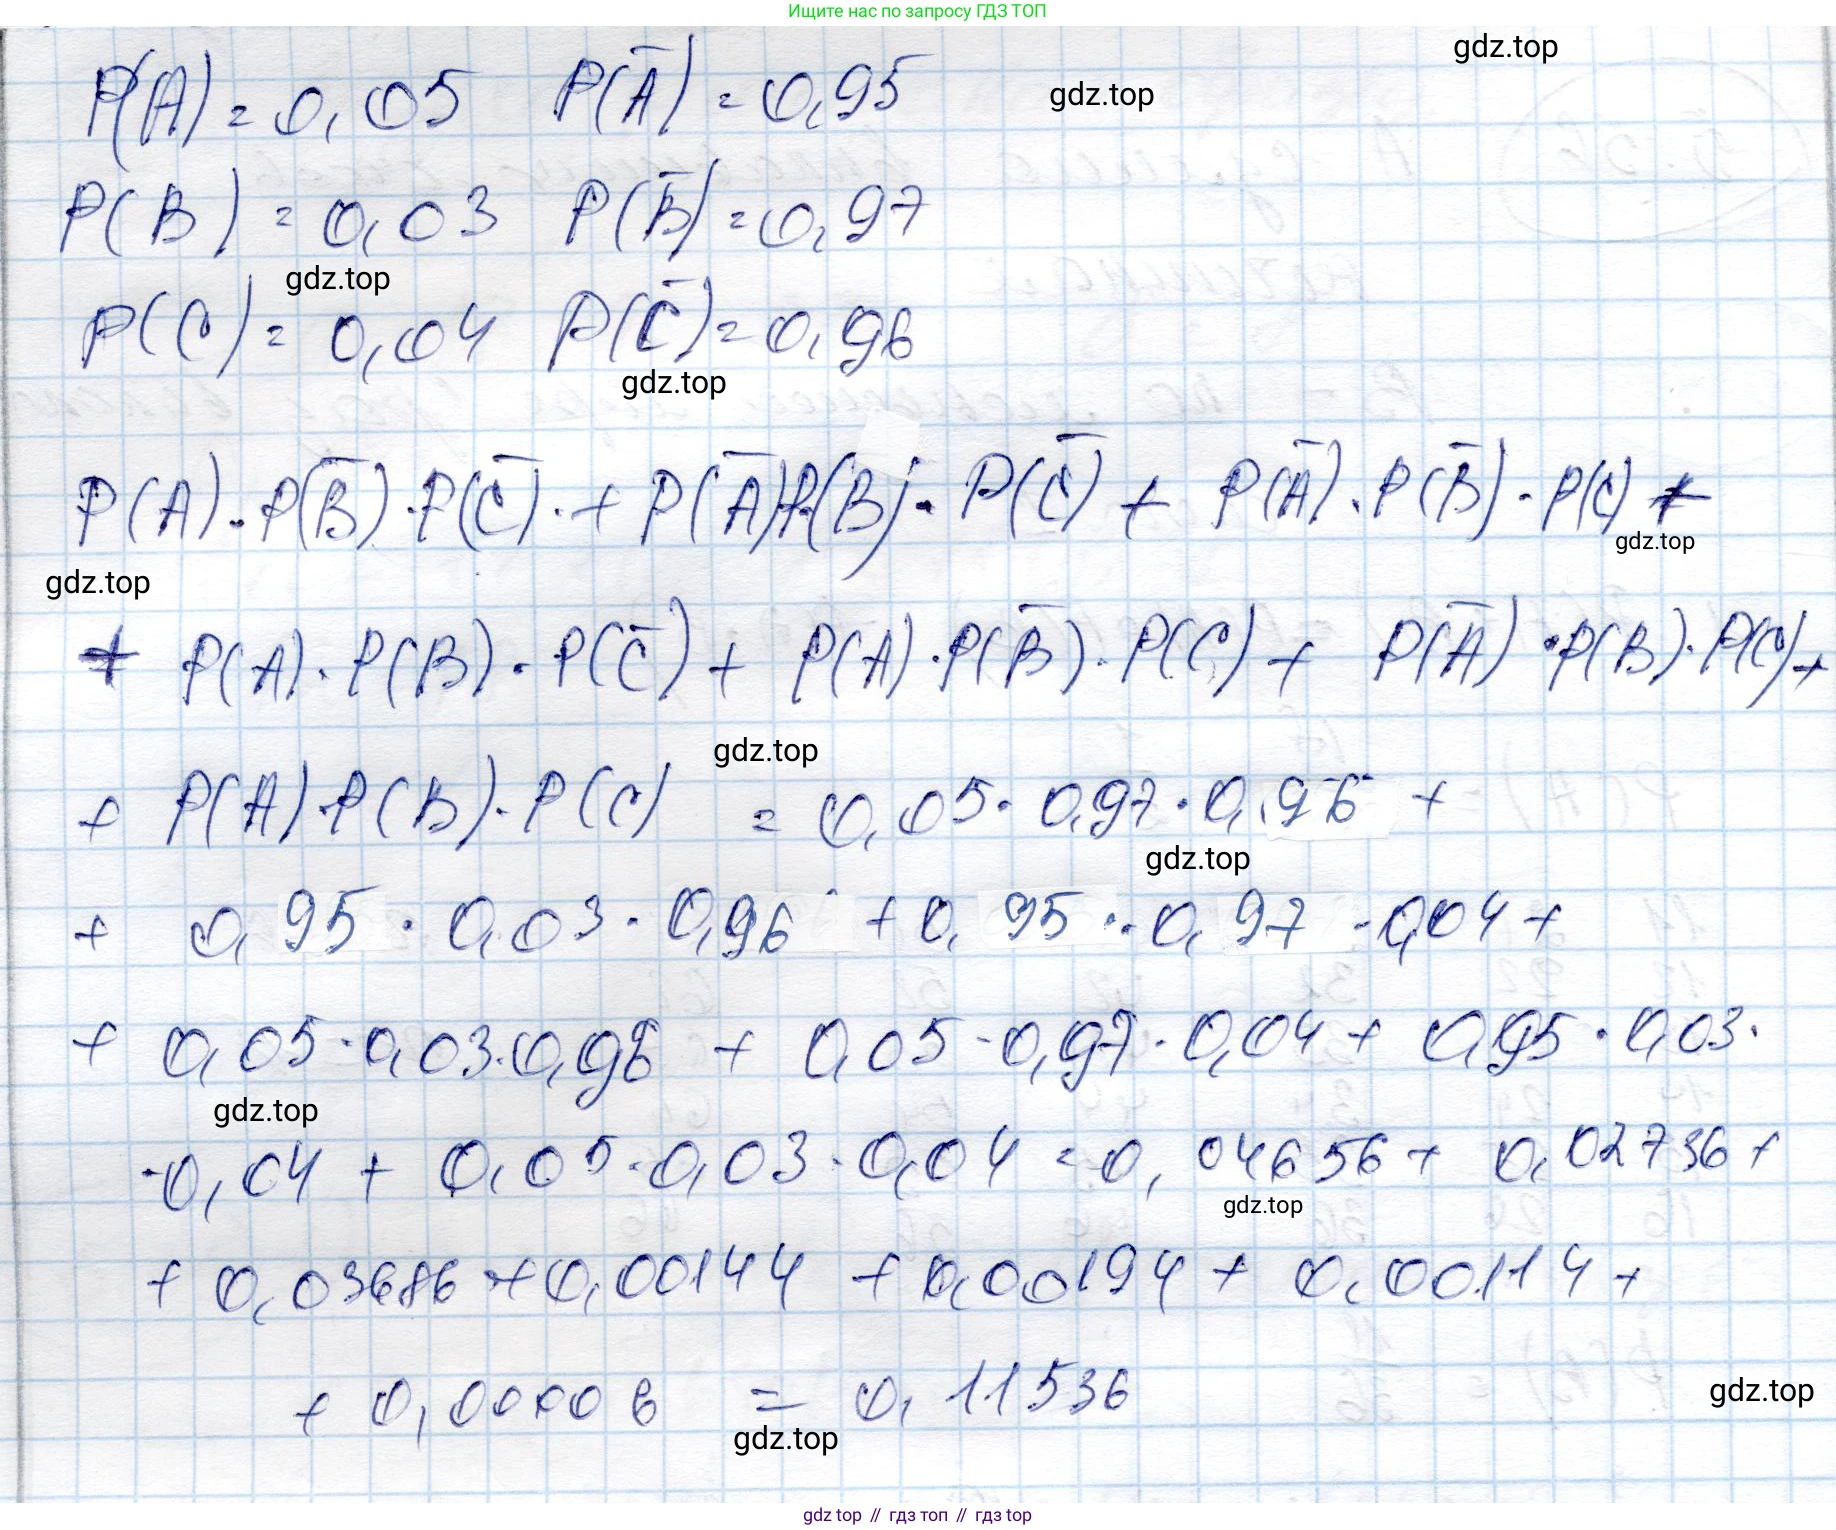 Ищите нас по запросу ГДЗ ТОП
gdz.top
P(A) = 0,05 P(Ā) = 0,95
gdz.top
P(B) = 0,03 P(B̄) = 0,97
gdz.top
P(C) = 0,04 P(C̄) = 0,96
gdz.top
P(A) · P(B̄) · P(C̄) · + P(Ā) · P(B) · P(C̄) + P(Ā) · P(B̄) · P(C) +
gdz.top
gdz.top
+ P(A) · P(B) · P(C̄) + P(A) · P(B̄) · P(C) + P(Ā) · P(B) · P(C) +
gdz.top
+ P(A) · P(B) · P(C) = 0,05 · 0,97 · 0,96 +
gdz.top
+ 0,95 · 0,03 · 0,96 + 0,95 · 0,97 · 0,04 +
+ 0,05 · 0,03 · 0,96 + 0,05 · 0,97 · 0,04 + 0,95 · 0,03 ·
gdz.top
· 0,04 + 0,05 · 0,03 · 0,04 = 0,04656 + 0,02736 +
gdz.top
+ 0,03686 + 0,00144 + 0,00194 + 0,00114 +
+ 0,00006 = 0,11536
gdz.top
gdz.top
gdz top // гдз топ // гдз top